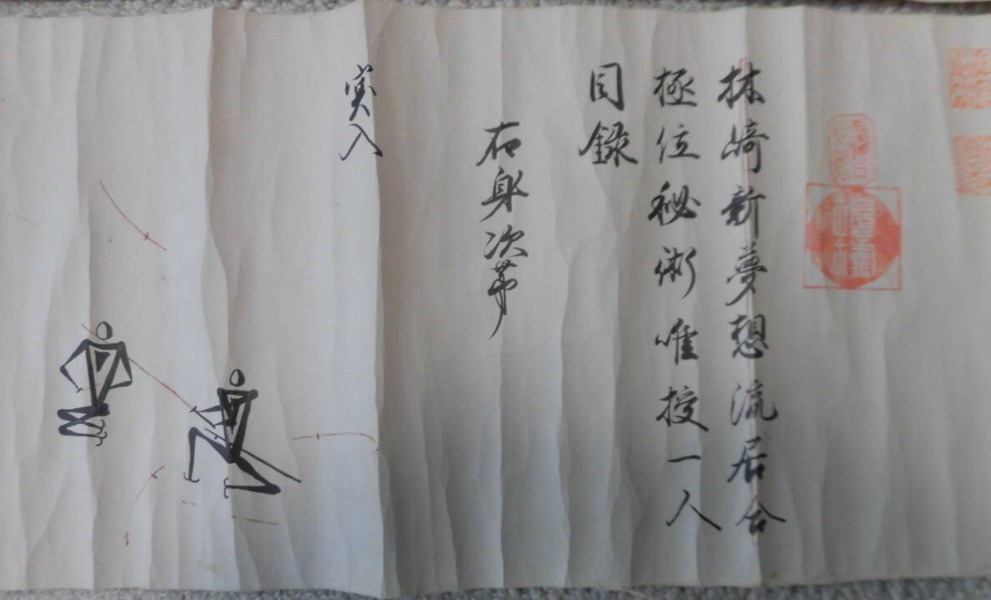 林崎新夢想流居合
極位秘術唯授一人
目錄
右身次第
突入